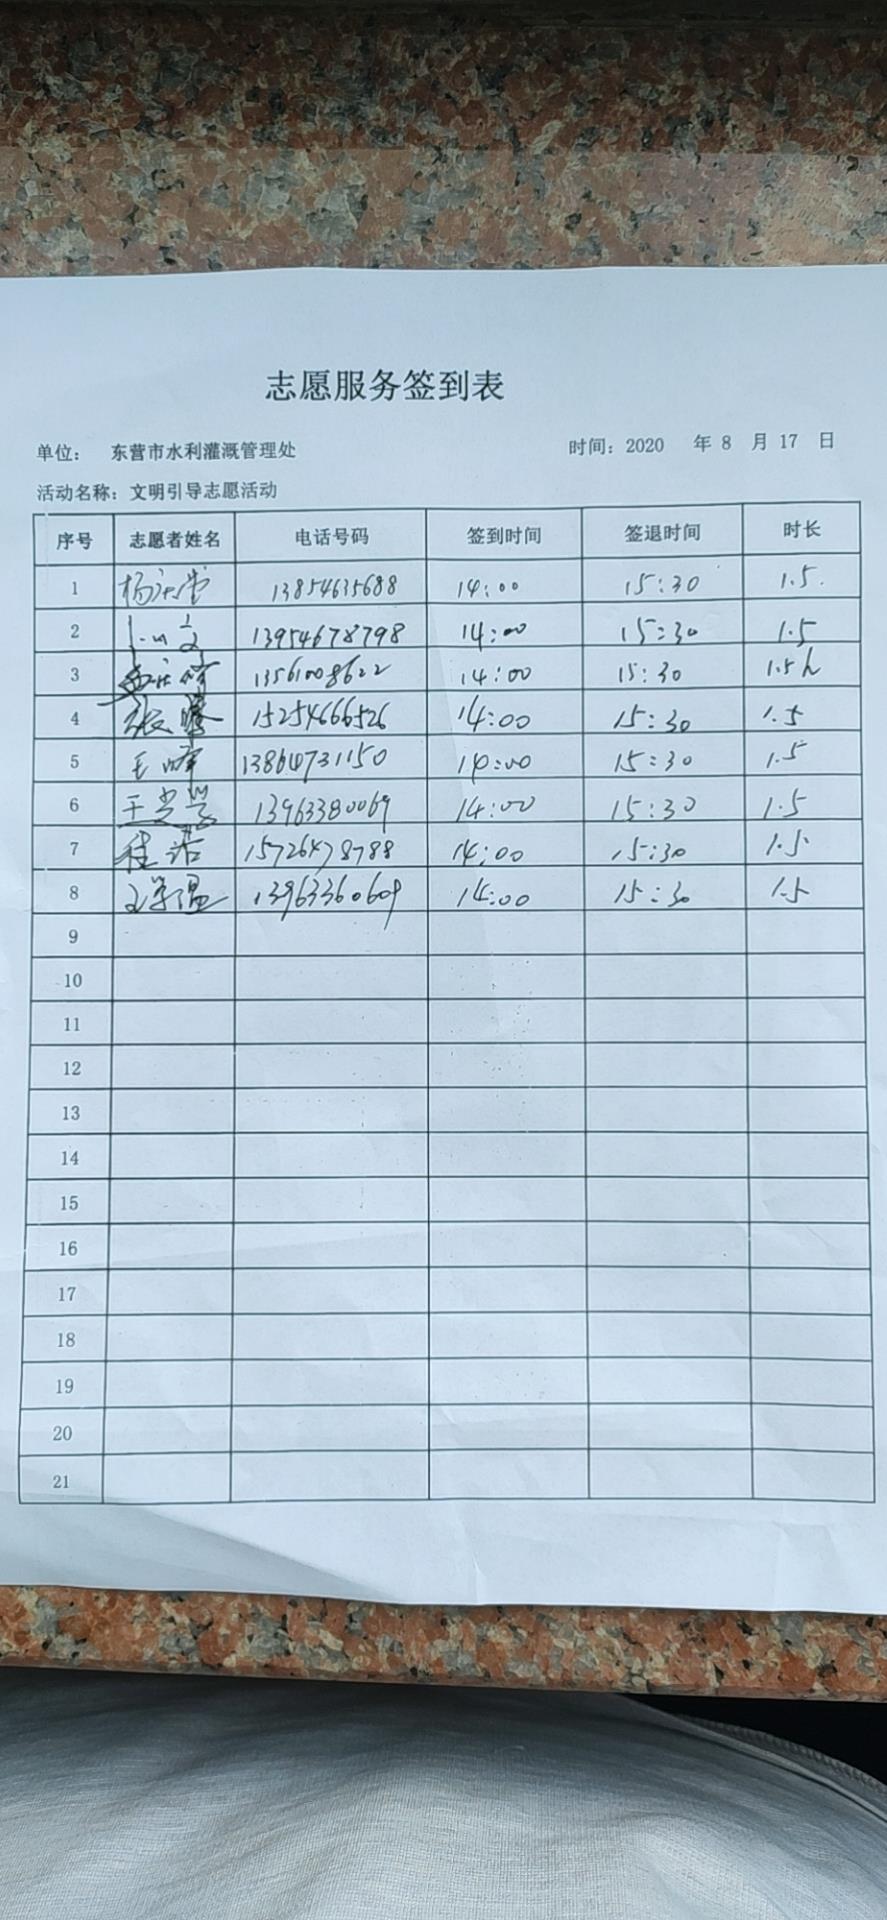 志愿服务签到表
单位： 东营市水利灌溉管理处 时间：2020 年 8 月 17 日
活动名称：文明引导志愿活动
序号 志愿者姓名 电话号码 签到时间 签退时间 时长
1 13854635688 14:00 15:30 1.5
2 13954678798 14:00 15:30 1.5
3 13561008622 14:00 15:30 1.5h
4 15254666526 14:00 15:30 1.5
5 王峰 13864731150 14:00 15:30 1.5
6 13963380069 14:00 15:30 1.5
7 15726478788 14:00 15:30 1.5
8 13963360609 14:00 15:30 1.5
9
10
11
12
13
14
15
16
17
18
19
20
21